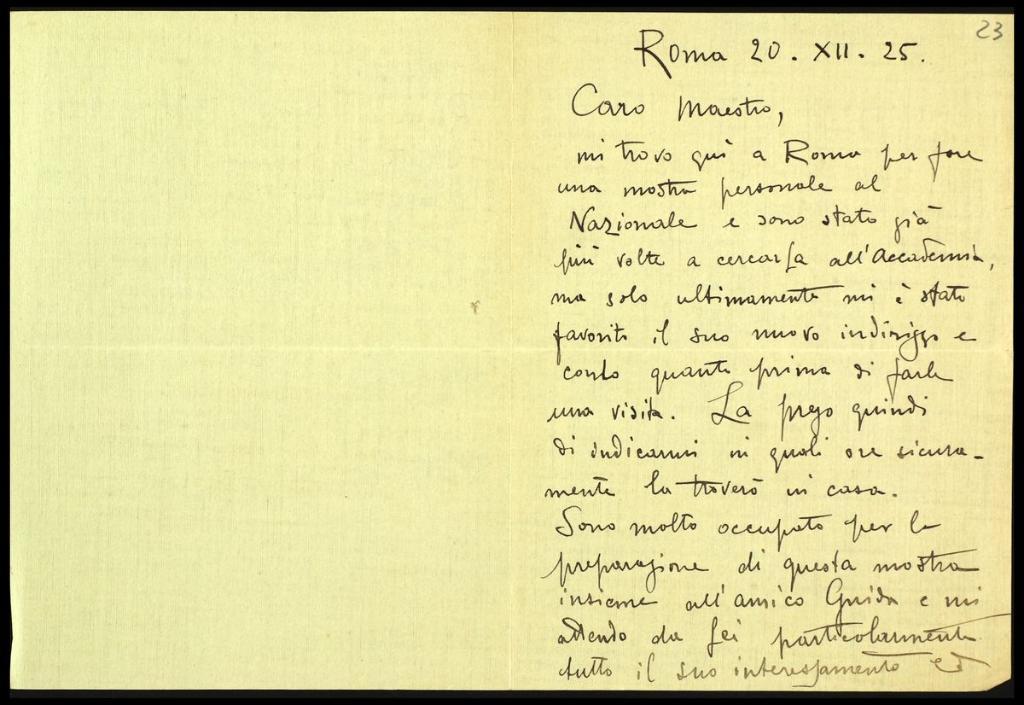 23
Roma 20. XII. 25.
Caro Maestro,
mi trovo qui a Roma per fare
una mostra personale al
Nazionale e sono stato già
più volte a cercarLa all'Accademia,
ma solo ultimamente mi è stato
favorito il suo nuovo indirizzo e
conto quanto prima di farle
una visita. La prego quindi
di indicarmi in quali ore sicura-
mente la troverò in casa.
Sono molto occupato per la
preparazione di questa mostra
insieme all'amico Guido e mi
attendo da Lei particolarmente
tutto il suo interessamento ed